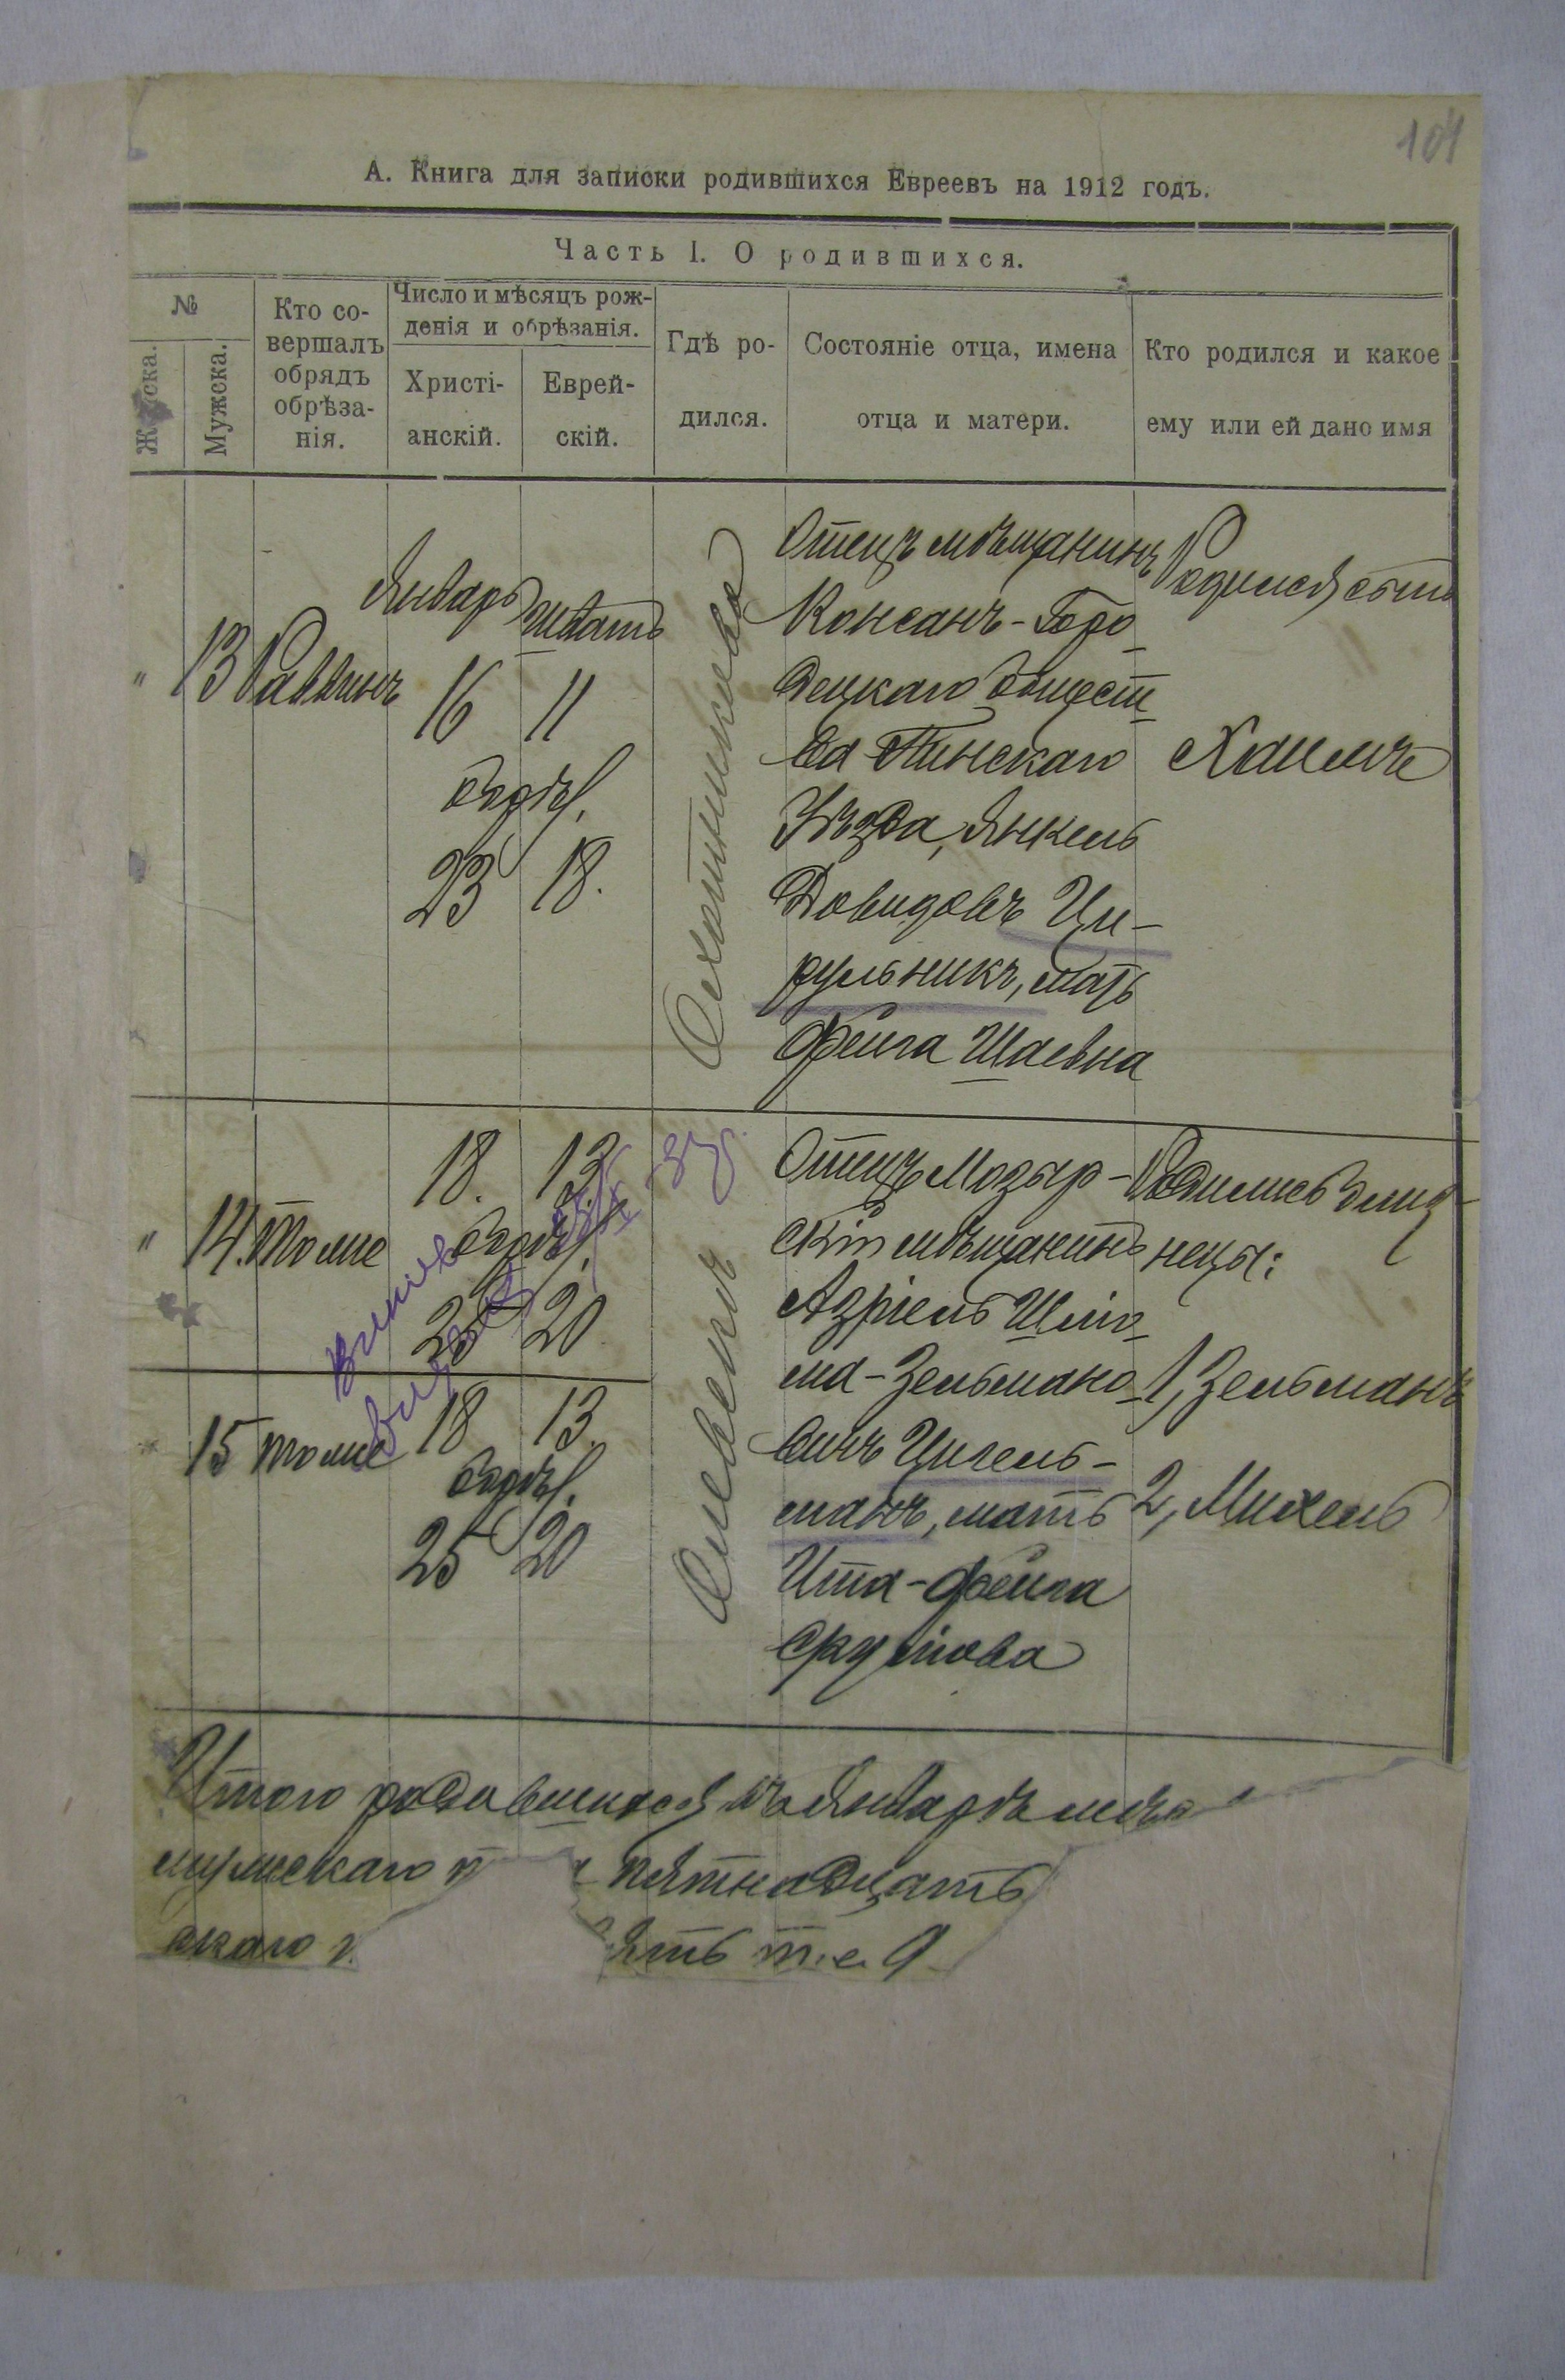 104
А. Книга для записки родившихся Евреевъ на 1912 годъ.
Часть I. О родившихся.
№
Женска.
Мужска.
Кто со-
вершалъ
обрядъ
обрѣза-
нія.
Число и мѣсяцъ рож-
денія и обрѣзанія.
Христі-
анскій.
Еврей-
скій.
Гдѣ ро-
дился.
Состояніе отца, имена
отца и матери.
Кто родился и какое
ему или ей дано имя
"
13
Раввинъ
Январь
Шватъ
16
11
обрѣз.
23
18.
Отецъ мѣщанинъ
Консанъ-Горо
децкаго общест
ва Пинскаго
Уѣзда, Янкель
Довидовъ Ци-
рульникъ, мать
Фейга Шаевна
Родился сынъ
Хаимъ
"
14.
Тоже
18.
13
обрѣз.
25
20
15
тоже
18
13
обрѣз.
25
20
Олевскъ
Отецъ Мозыр-
скій мѣщанинъ
Азріель Шлио
ма-Зельмано
вичъ Цигель-
манъ, мать
Ита-Фейга
Родились близ
нецы:
1, Зельманъ
2, Михель
Итого родившихся въ Январѣ мѣс
мужскаго п
пятнадцать
скаго
ять т.е. 9